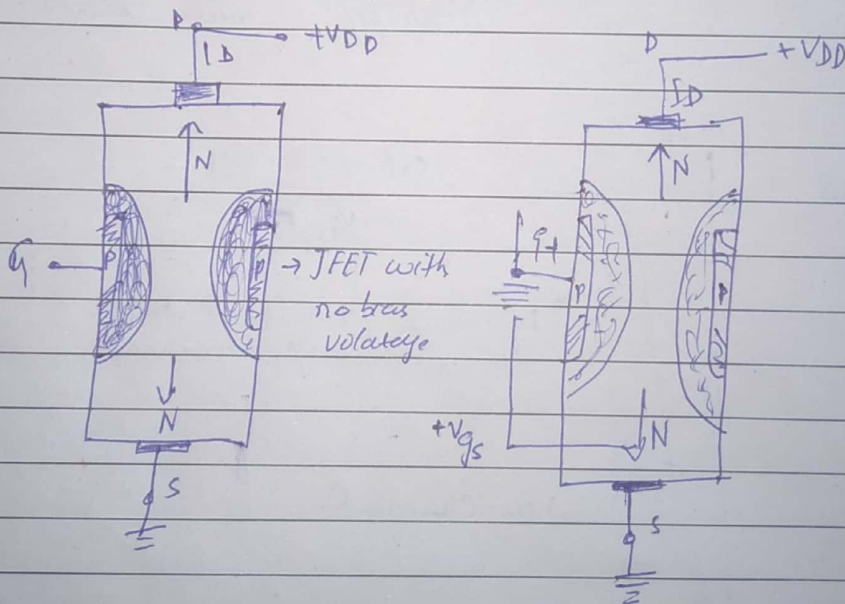 D
+VDD
ID
N
G
P
P
→ JFET with
no bias
volateye
N
S
D
+VDD
ID
N
G
P
+Vgs
N
S